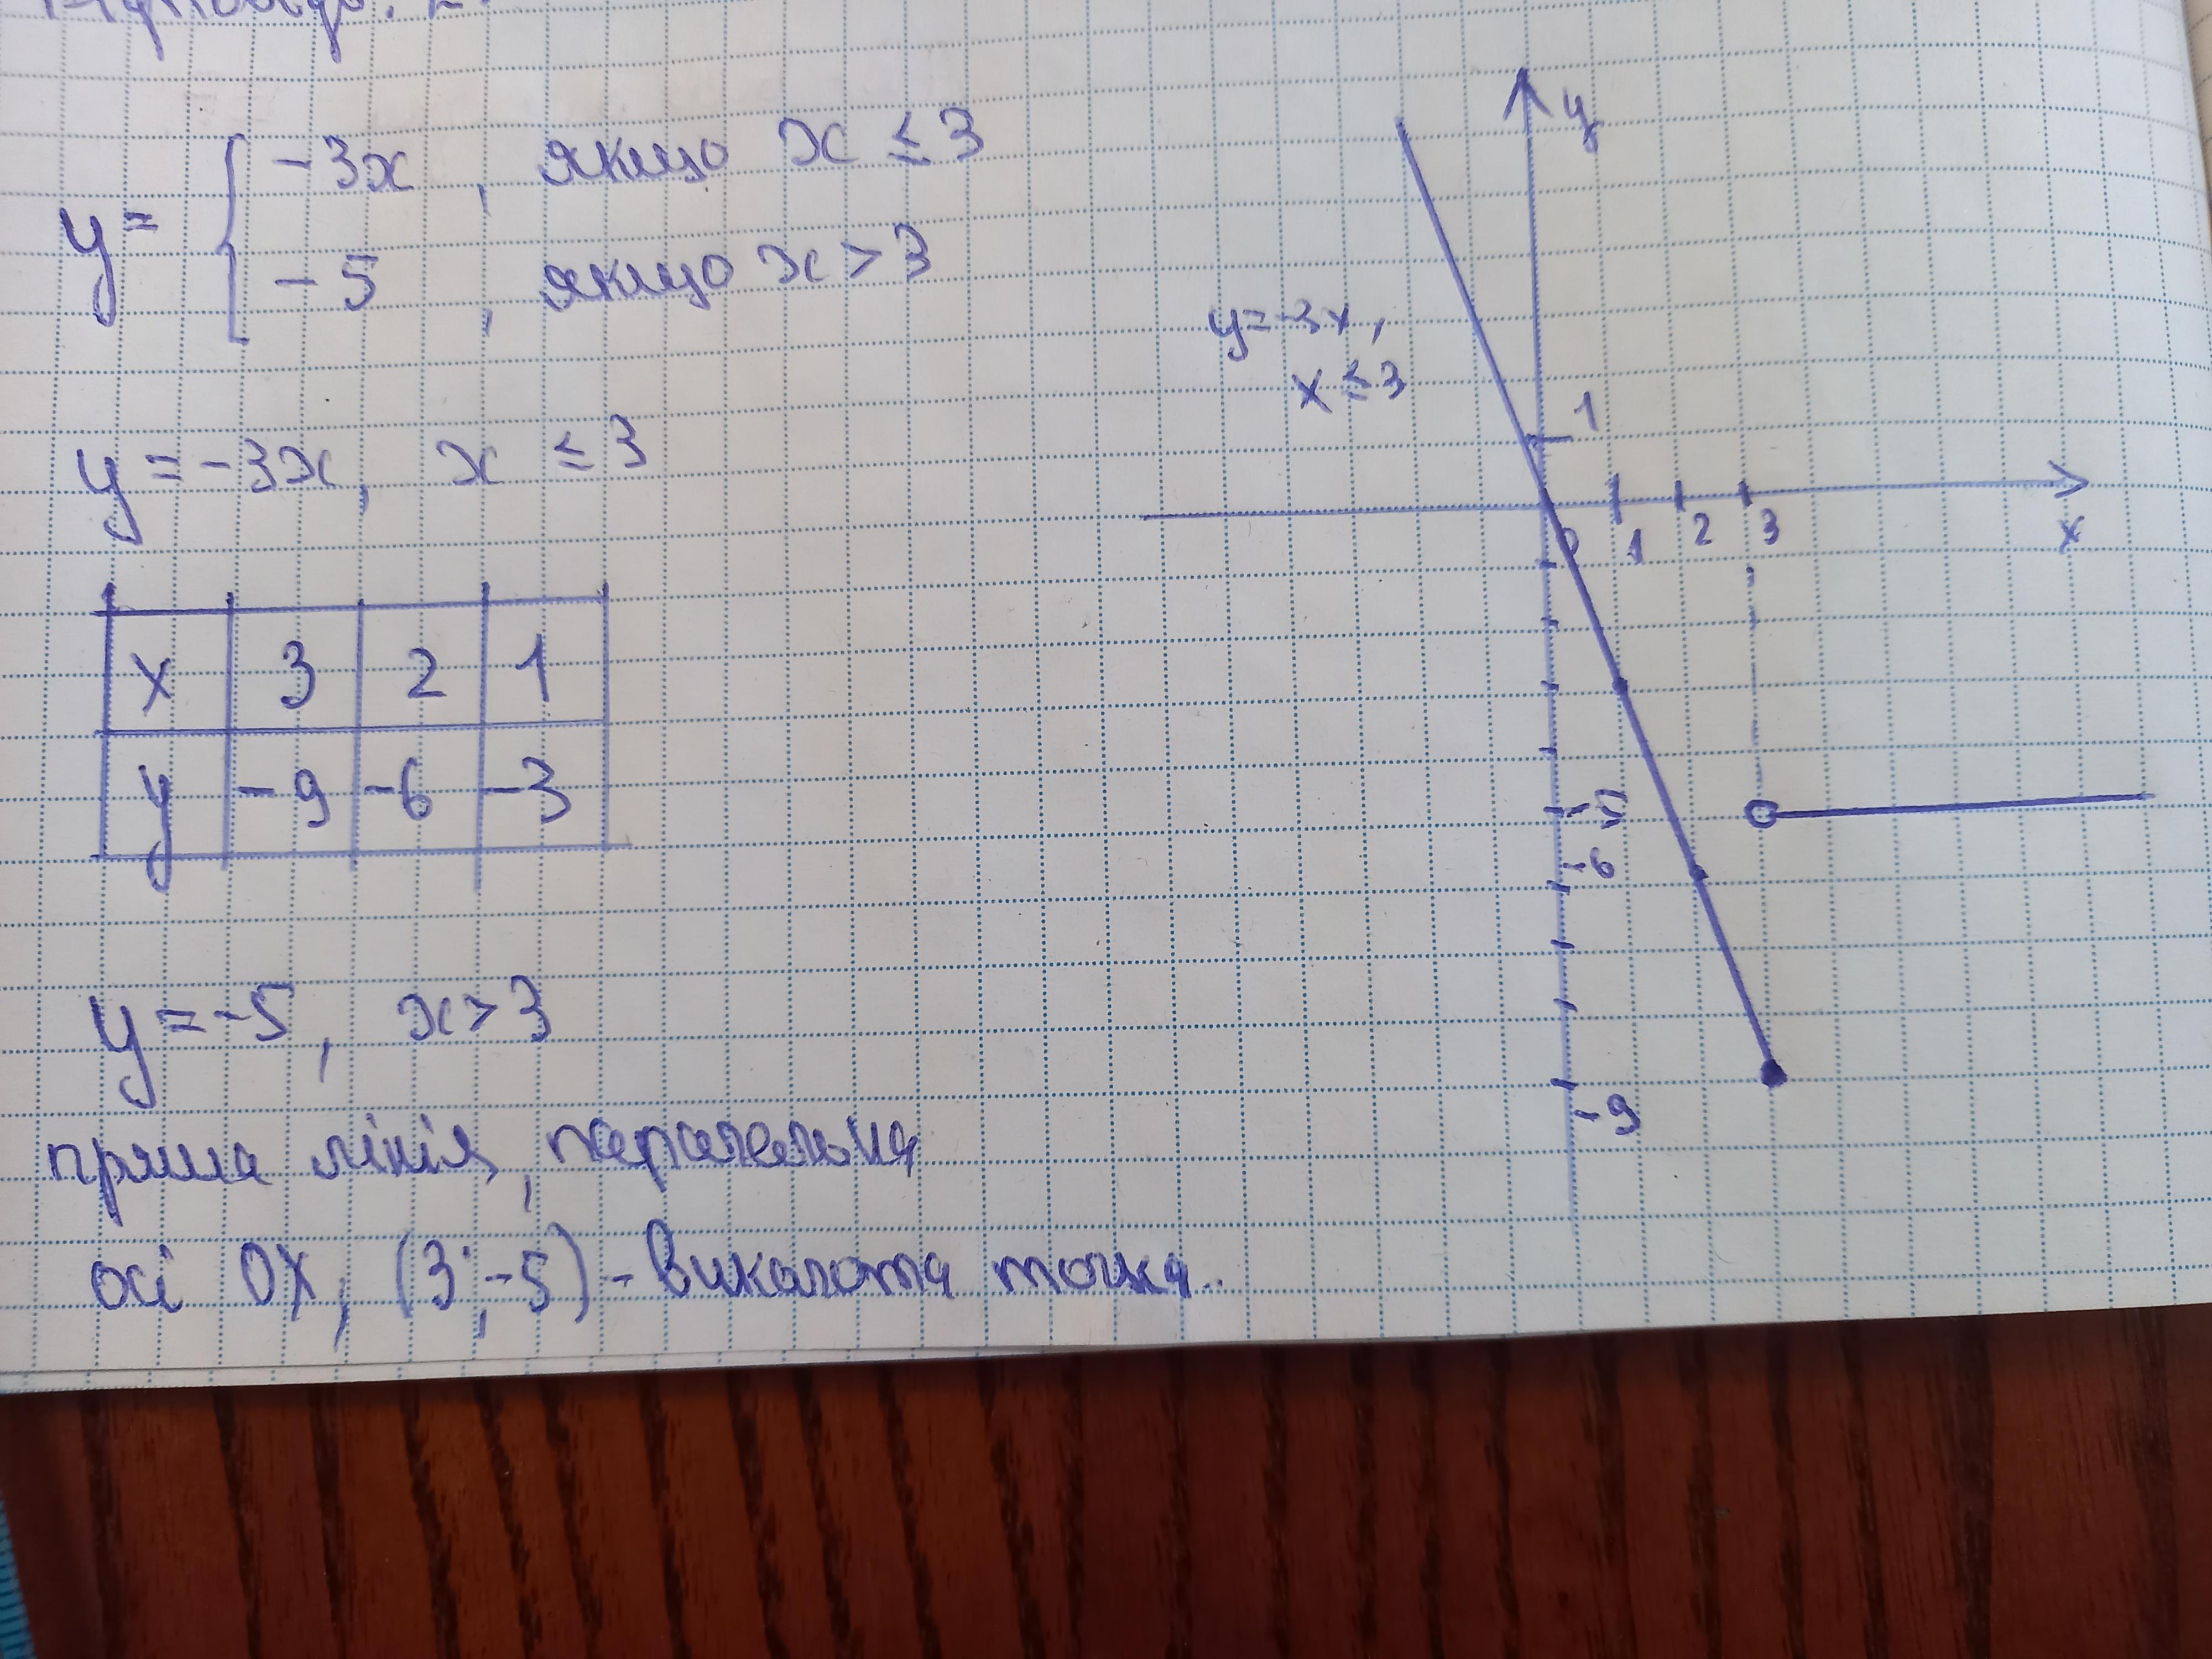 y = { -3x , якщо x ≤ 3
-5 , якщо x > 3
y = -3x, x ≤ 3
x 3 2 1
y -9 -6 -3
y = -5, x > 3
пряма лінія, паралельна
осі OX, (3; -5) - виколота точка.
y
y = -3x,
x ≤ 3
1
0 1 2 3
x
-5
-6
-9